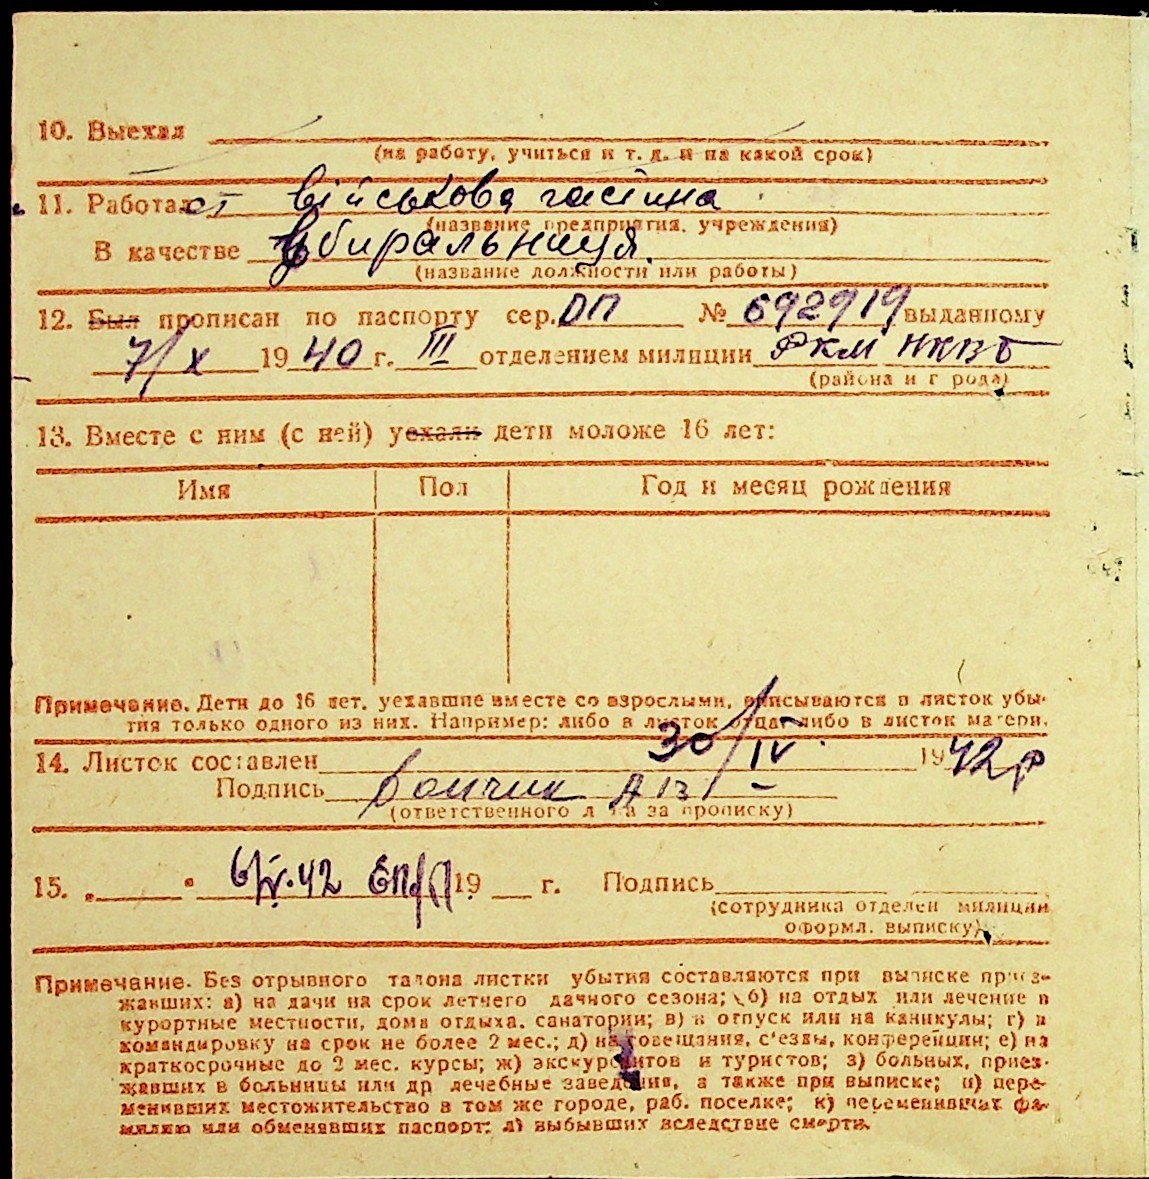 10. Выехал
(на работу, учиться и т. д. и на какой срок)
11. Работает військова частина
(название предприятия, учреждения)
В качестве Убиральниця.
(название должности или работы)
12. Был прописан по паспорту сер. ДП № 692919 выданному
7/X 1940 г. III отделением милиции РКМ НКВД
(района и города)
13. Вместе с ним (с ней) уехали дети моложе 16 лет:
Имя Пол Год и месяц рождения
Примечание. Дети до 16 лет, уехавшие вместе со взрослыми, вписываются в листок убы-
тия только одного из них. Например: либо в листок отца, либо в листок матери.
14. Листок составлен 30/IV 1942 р
Подпись
(ответственного лица за прописку)
15. „ “ 6/V.42 19 г. Подпись
(сотрудника отделен милиции
оформл. выписку)
Примечание. Без отрывного талона листки убытия составляются при выписке приез-
жавших: а) на дачи на срок летнего дачного сезона; б) на отдых или лечение в
курортные местности, дома отдыха, санатории; в) в отпуск или на каникулы; г) в
командировку на срок не более 2 мес.; д) на совещания, с'езды, конференции; е) на
краткосрочные до 2 мес. курсы; ж) экскурсантов и туристов; з) больных, приез-
жавших в больницы или др лечебные заведения, а также при выписке; и) пере-
менивших местожительство в том же городе, раб. поселке; к) переменивших фа-
милию или обменявших паспорт; л) выбывших вследствие смерти.